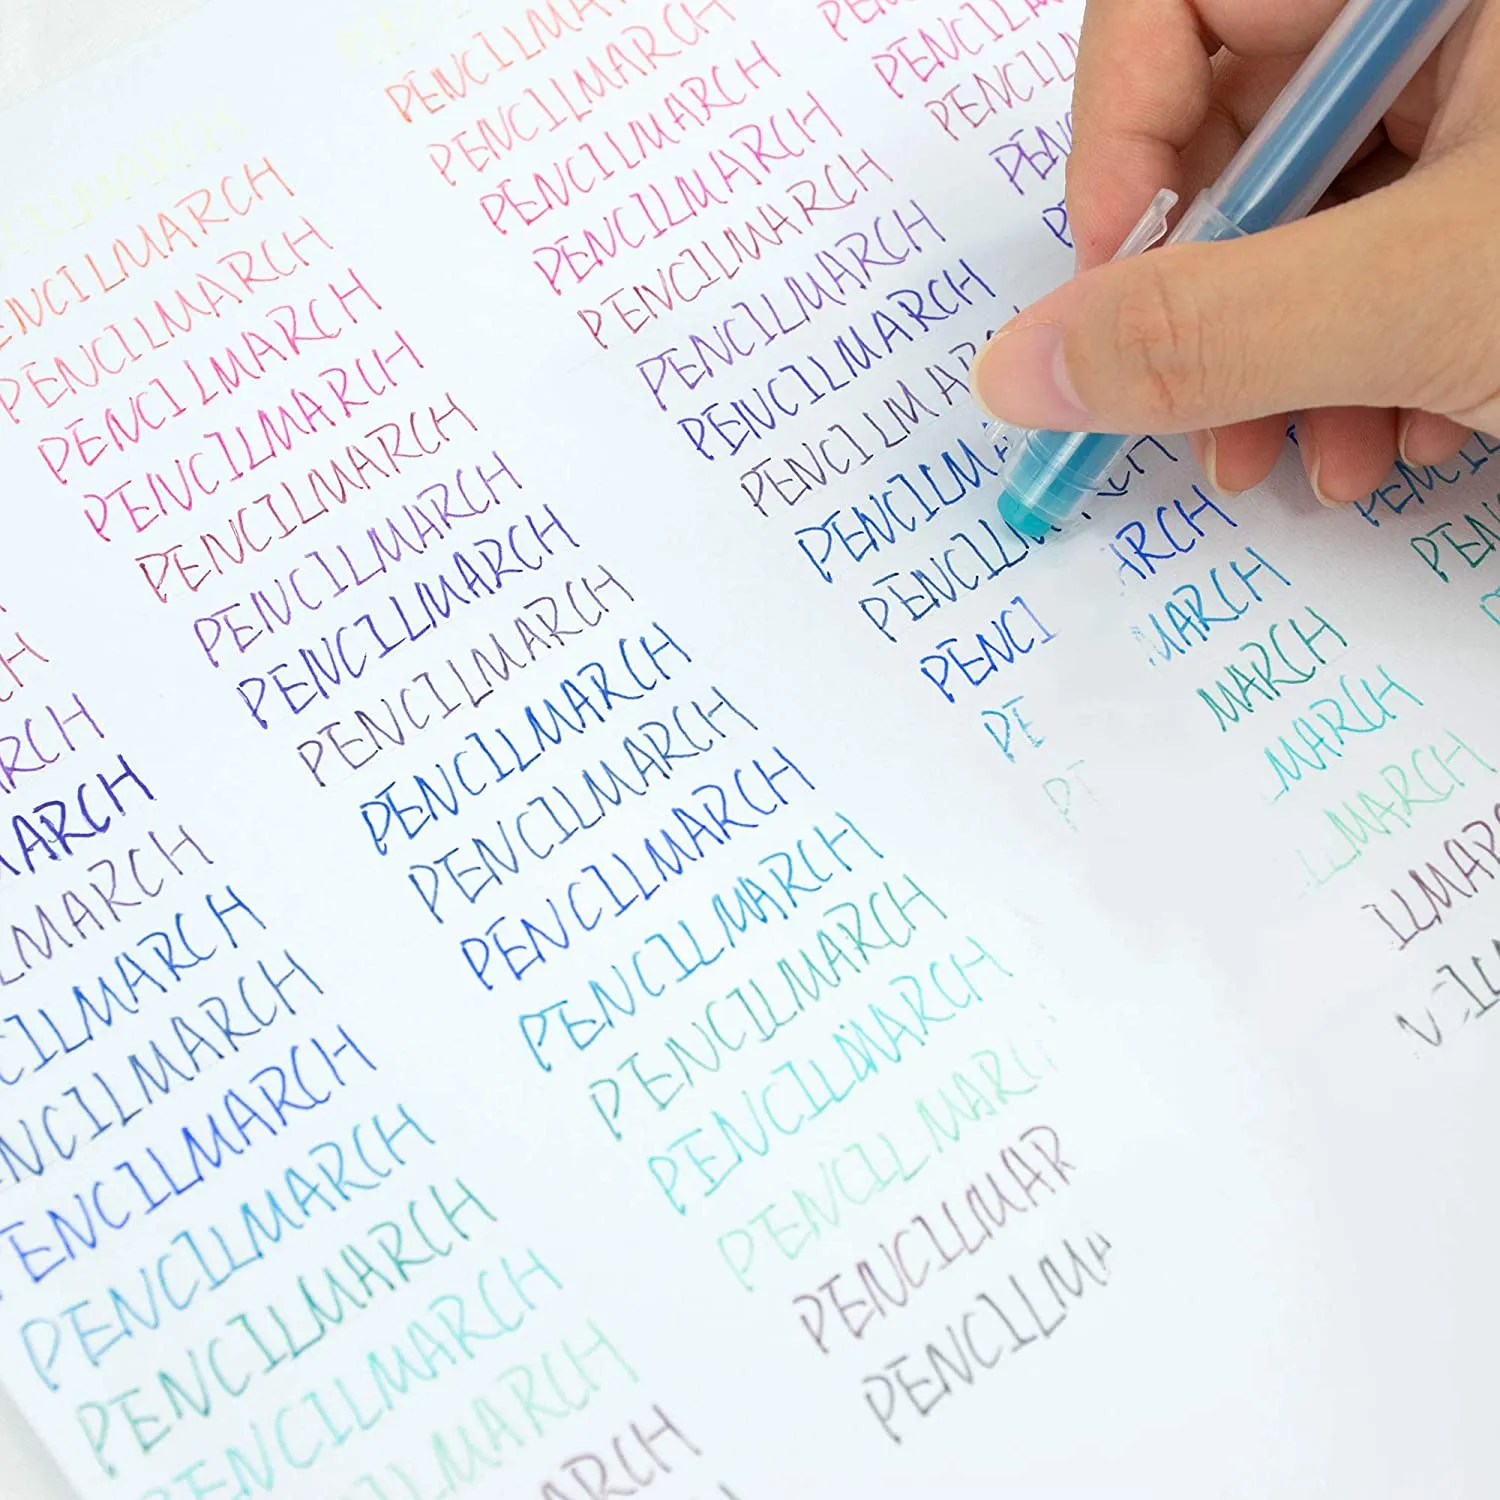 H
CH
RCH
ARCH
LMARCH
CILMARCH
NCILMARCH
ENCILMARCH
PENCILMARCH
PENCILMARCH
ENCILMARCH
ILMARCH
ARCH
CILMARCH
ENCILMARCH
PENCILMARCH
PENCILMARCH
PENCILMARCH
PENCILMARCH
PENCILMARCH
PENCILMARCH
PENCILMARCH
PENCILMARCH
PENCILMARCH
PENCILMARCH
PENCILMARCH
PENCILMARCH
PENCILMARCH
PENCILMARC
PENCILMAR
PENCILM
PENCILMA
PENCILMARCH
PENCILMARCH
PENCILMARCH
PENCILMARCH
PENCILMARCH
PENCILMARCH
PENCILMA
PENCILMA
PENCIL
PENCI ARCH
PE MARCH
PE MARCH
MARCH
LMARCH
ILMAR
PEN
PENCILM
PENCILM
PENC
PEN